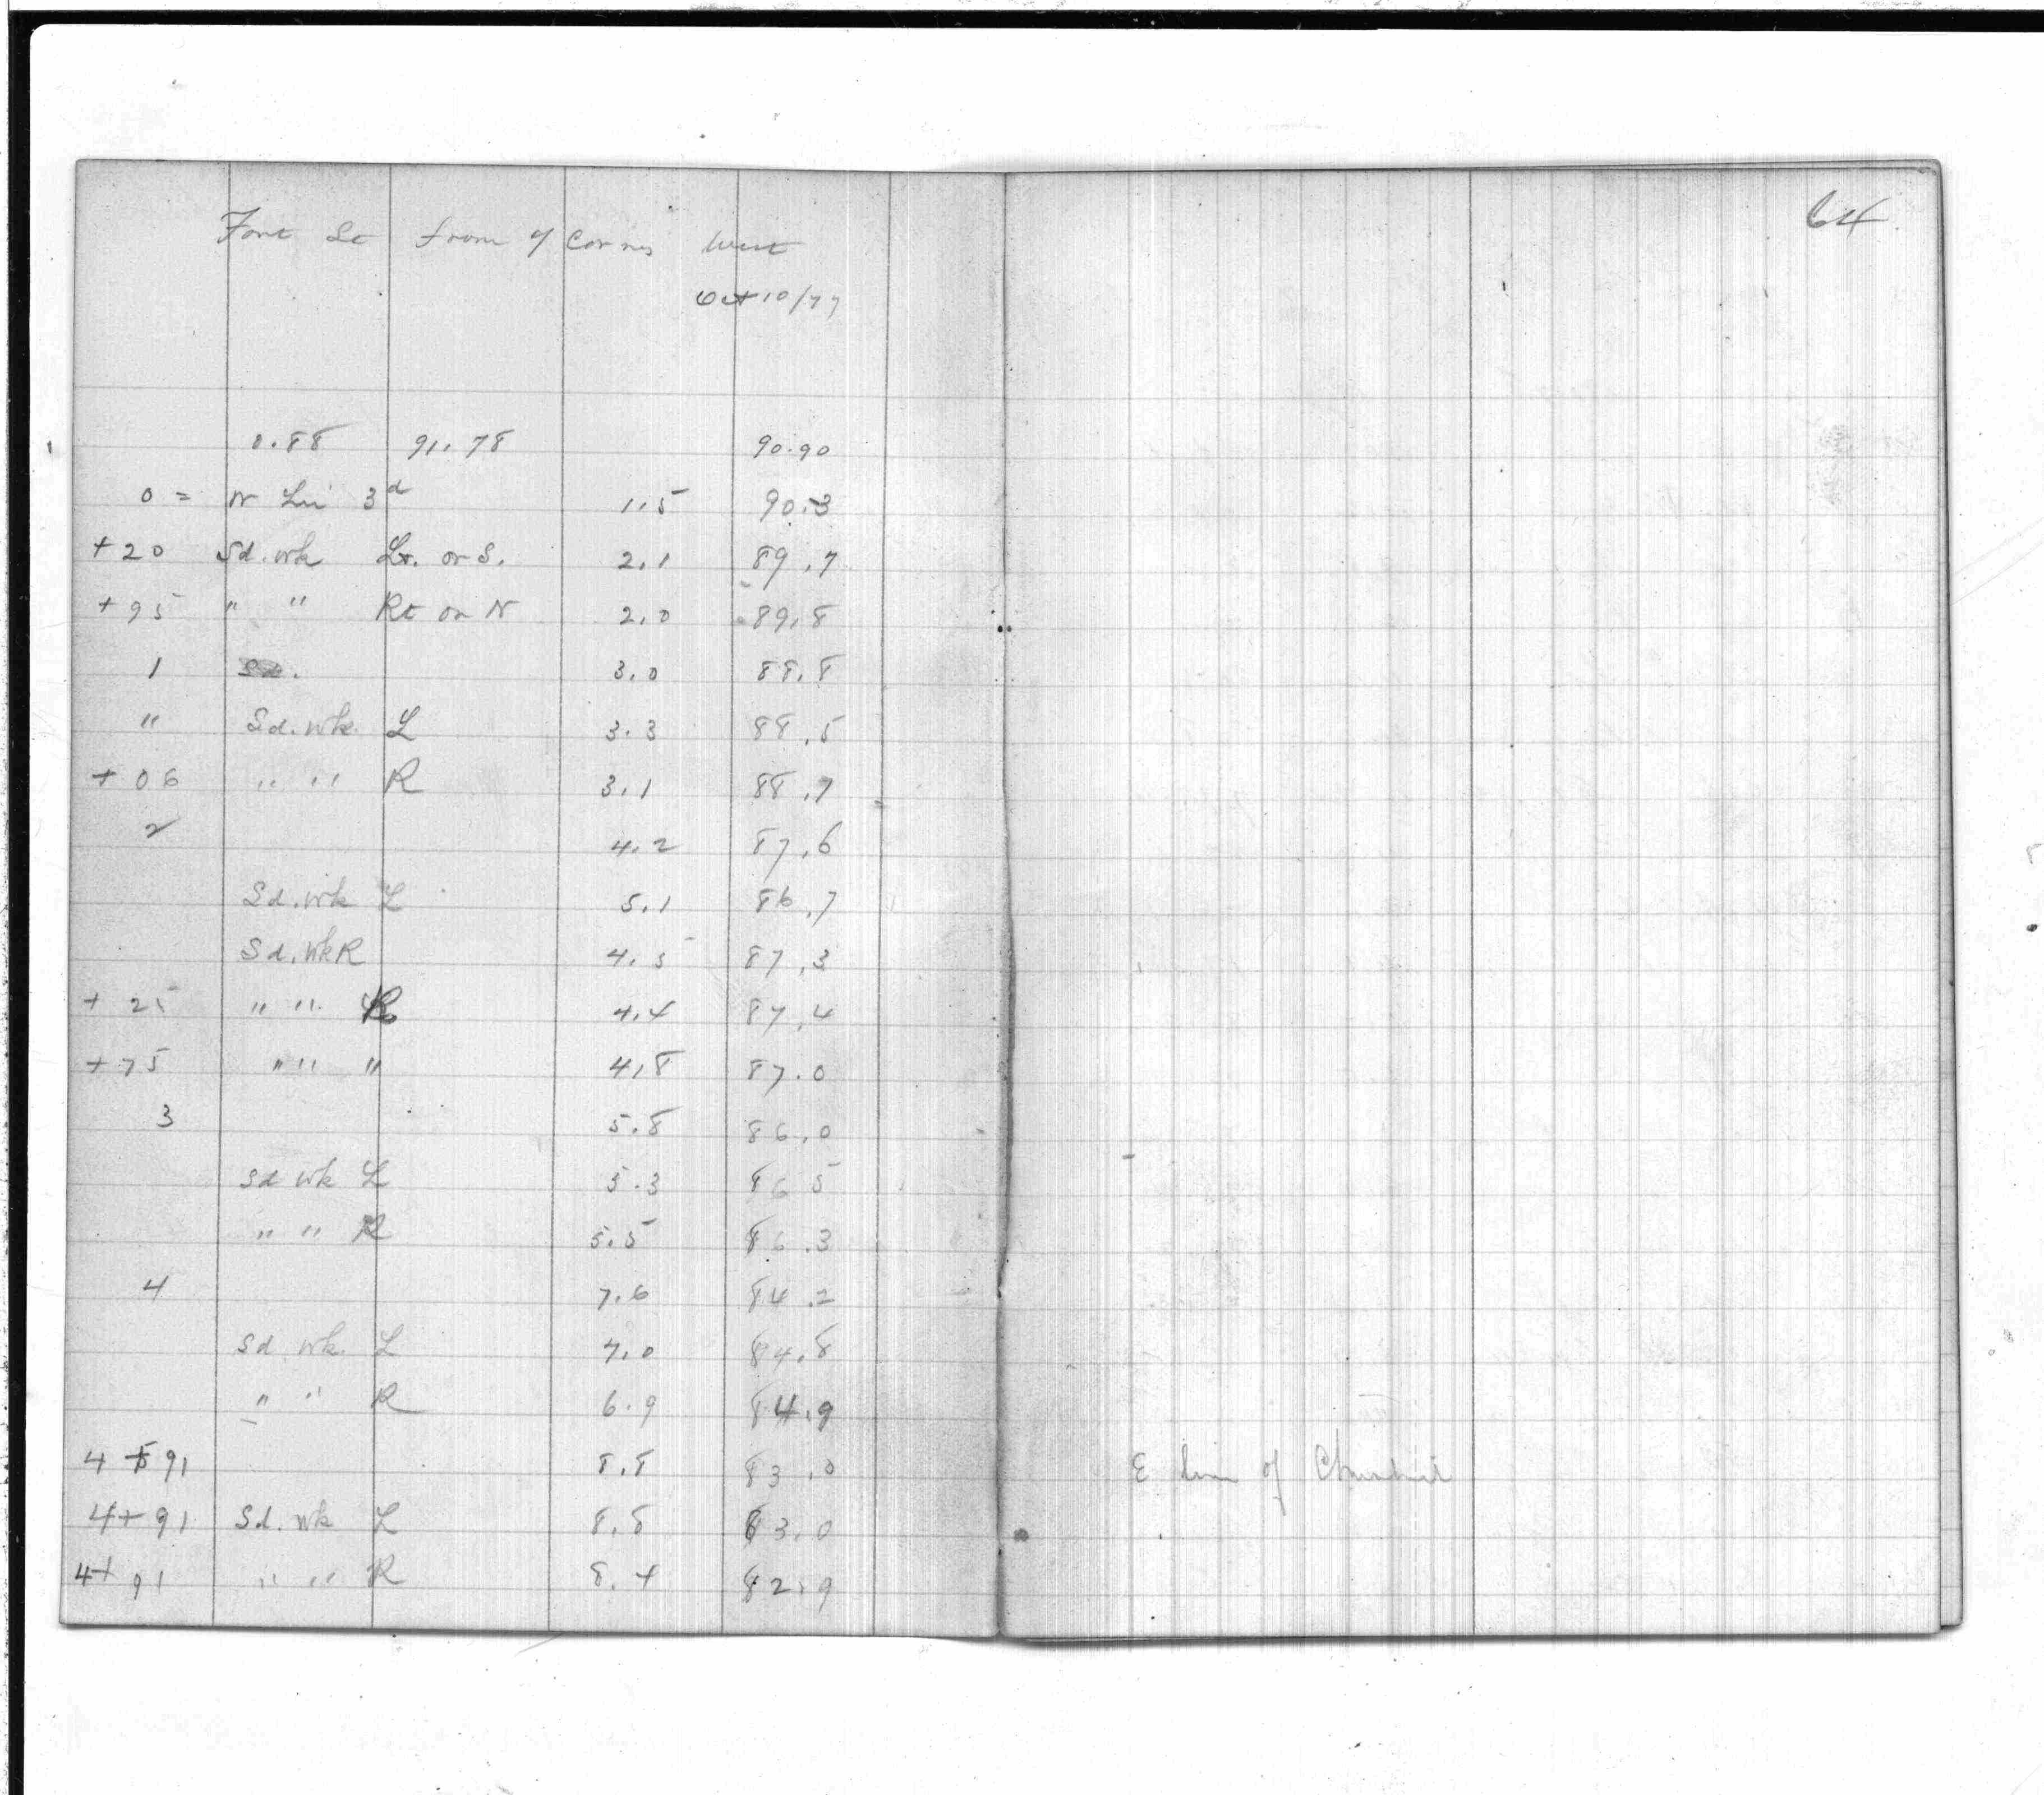 Fort St from 7 Corners West
Oct 10/77
0.88 91.78 90.90
0 = W Lin 3d 1.5 90.3
+20 Sd. wk Lt. or S. 2.1 89.7
+95 " " Rt or N 2.0 89.8
1 3.0 88.8
" Sd. wk. L 3.3 88.5
+06 " " R 3.1 88.7
2 4.2 87.6
Sd. wk L 5.1 86.7
Sd. wk R 4.5 87.3
+25 " " R 4.4 87.4
+75 " " " 4.8 87.0
3 5.8 86.0
Sd wk L 5.3 86 5
" " R 5.5 86.3
4 7.6 84.2
Sd. wk. L 7.0 84.8
" " R 6.9 84.9
4 + 91 8.8 83.0
4+91 Sd. wk L 8.8 83.0
4+91 " " R 8.4 82.9
64
E line of